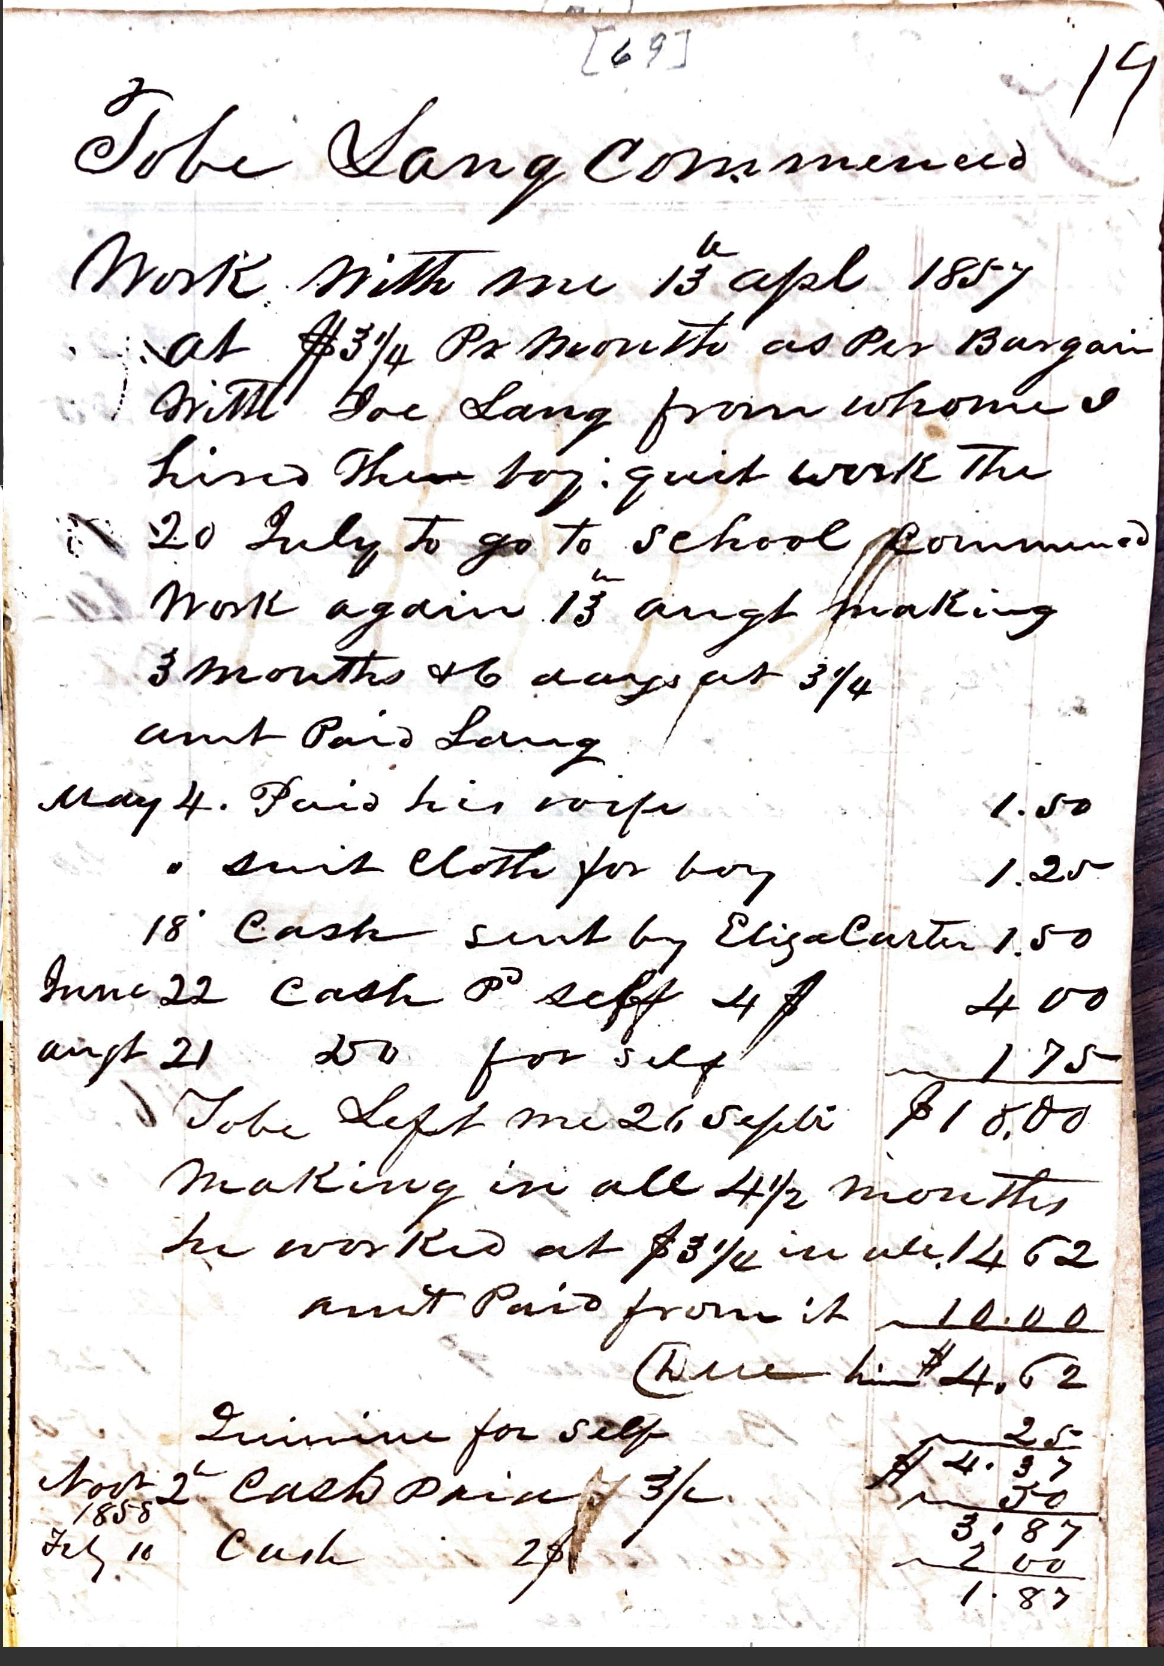 [69]
19
Tobe Lang Commenced
Work With me 13th apl 1857
at $3 1/4 Pr Month as Per Bargain
With Joe Lang from whome I
hired The boy: quit work The
20 July to go to school Commenced
Work again 13th augt making
3 Months & 6 days at 3 1/4
amt Paid Lang
May 4. Paid his wife 1.50
" suit Cloth for boy 1.25
18 Cash sent by Eliza Carter 1.50
June 22 Cash Pd self 4$ 4 00
augt 21 for self 1 75
Tobe Left me 26 Septr $10.00
Making in all 4 1/2 Months
he worked at $3 1/4 in all. 14 62
amt Paid from it 10.00
Due him $4.62
Quinine for self 25
$4.37
Novr 2d Cash Paid 3/ 50
3.87
1858
Feby 10 Cash 2$ 2 00
1.87